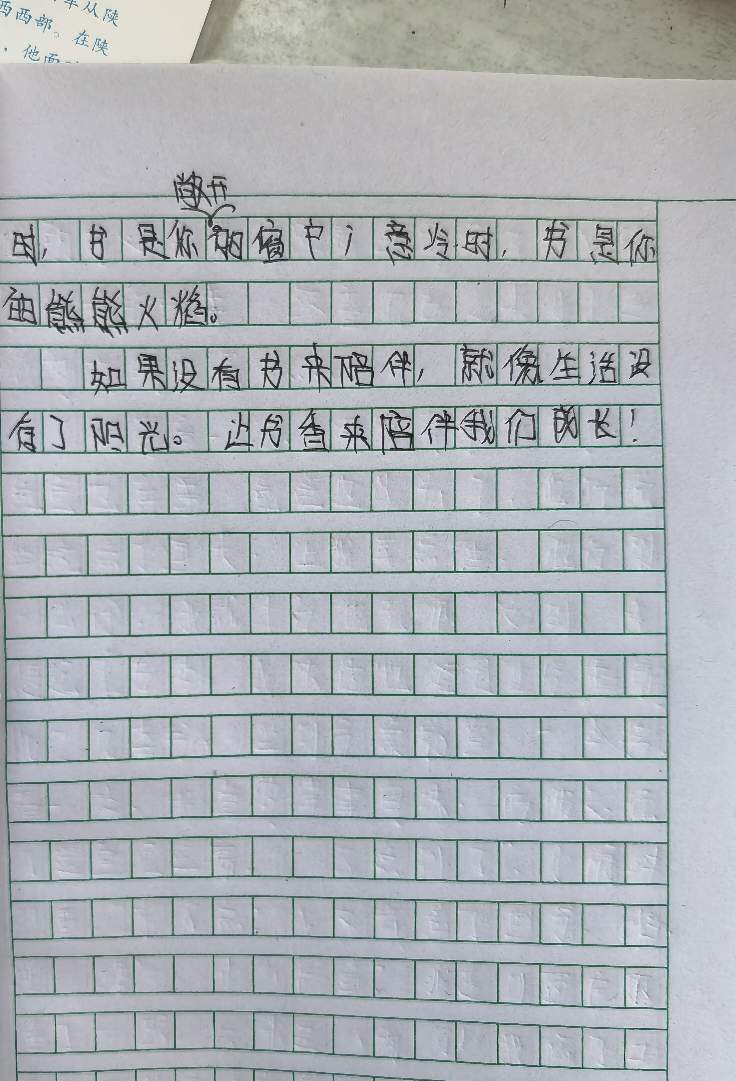 年从陕
西西部。在陕
，他面
敞开
时，书是你的窗户；意冷时，书是你
的熊熊火焰。
如果没有书来陪伴，就像生活没
有了阳光。让书香来陪伴我们成长！